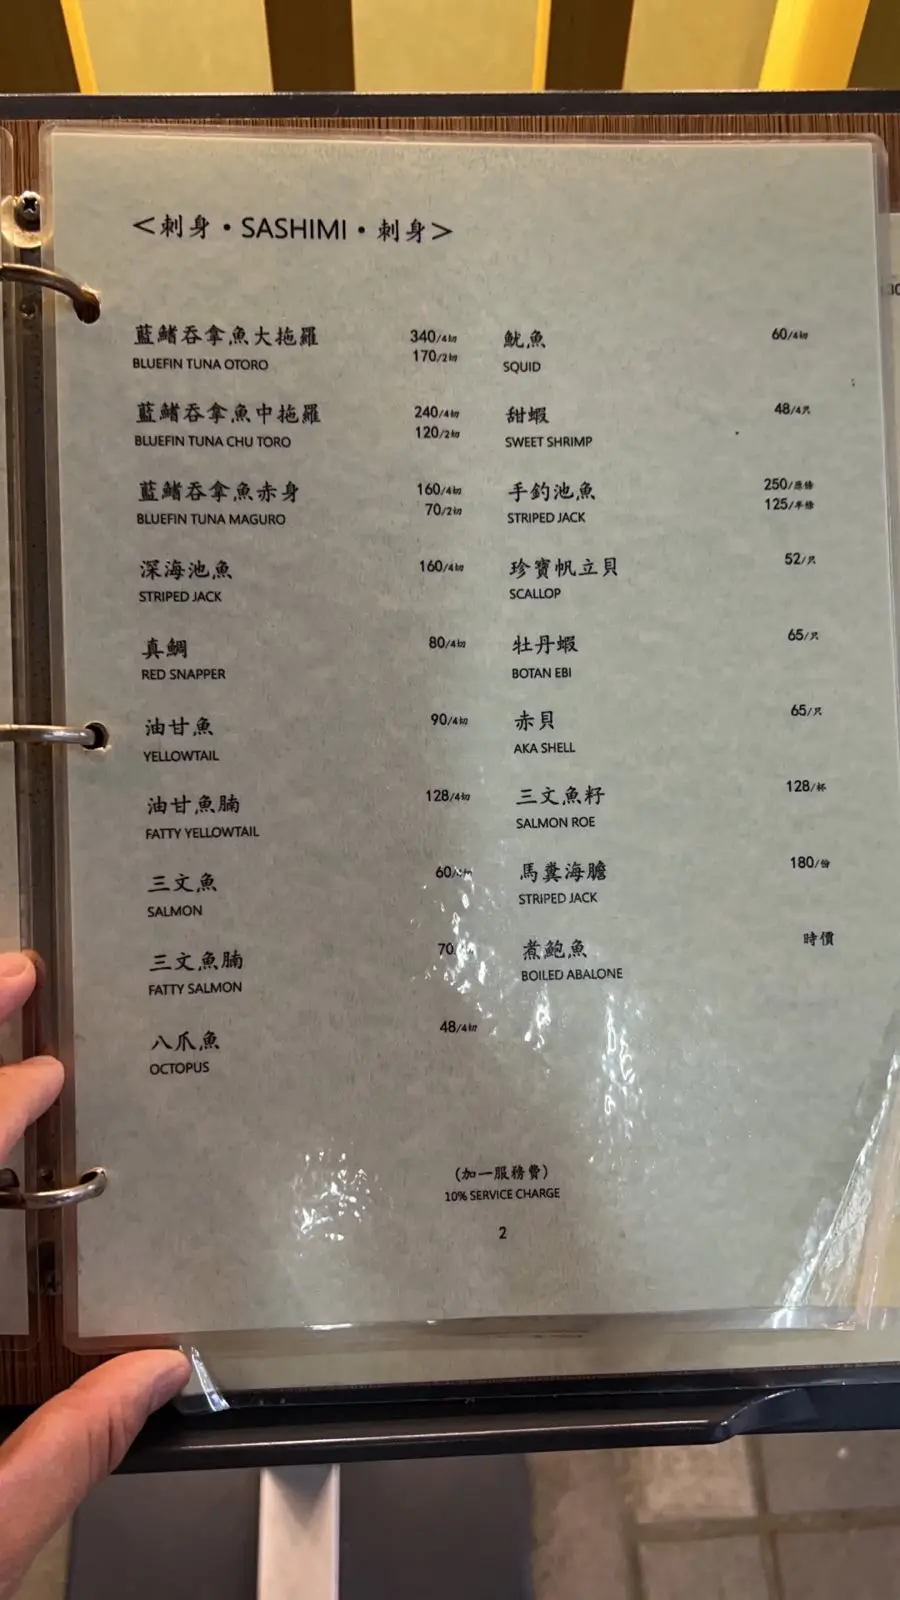 <刺身・SASHIMI・刺身>
藍鰭吞拿魚大拖羅 340/4切
BLUEFIN TUNA OTORO 170/2切
藍鰭吞拿魚中拖羅 240/4切
BLUEFIN TUNA CHU TORO 120/2切
藍鰭吞拿魚赤身 160/4切
BLUEFIN TUNA MAGURO 70/2切
深海池魚 160/4切
STRIPED JACK
真鯛 80/4切
RED SNAPPER
油甘魚 90/4切
YELLOWTAIL
油甘魚腩 128/4切
FATTY YELLOWTAIL
三文魚 60/4切
SALMON
三文魚腩 70
FATTY SALMON
八爪魚 48/4切
OCTOPUS
魷魚 60/4切
SQUID
甜蝦 48/4只
SWEET SHRIMP
手釣池魚 250/原條
STRIPED JACK 125/半條
珍寶帆立貝 52/只
SCALLOP
牡丹蝦 65/只
BOTAN EBI
赤貝 65/只
AKA SHELL
三文魚籽 128/杯
SALMON ROE
馬糞海膽 180/份
STRIPED JACK
煮鮑魚 時價
BOILED ABALONE
(加一服務費)
10% SERVICE CHARGE
2